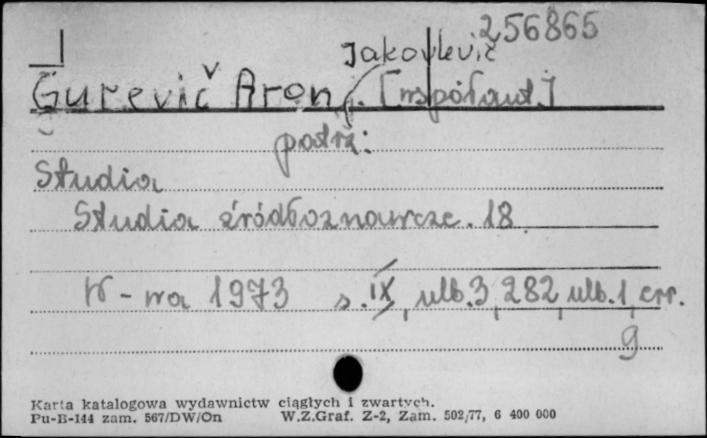 256865
Jakovlevič
Gurevič Aron J. [współaut.]
patrz:
Studia
Studia źródłoznawcze. 18
W-wa 1973 s. IX, ulb. 3, 282, ulb. 1, err.
9
Karta katalogowa wydawnictw ciągłych i zwartych.
Pu-B-144 zam. 567/DW/On W.Z.Graf. Z-2, Zam. 502/77, 6 400 000